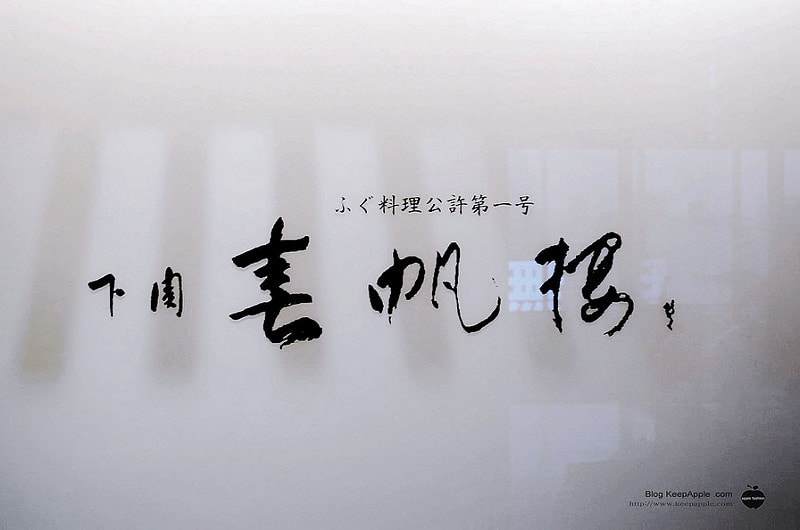 ふぐ料理公許第一号
下関 春帆楼
無
Blog KeepApple com
http://www.keepapple.com